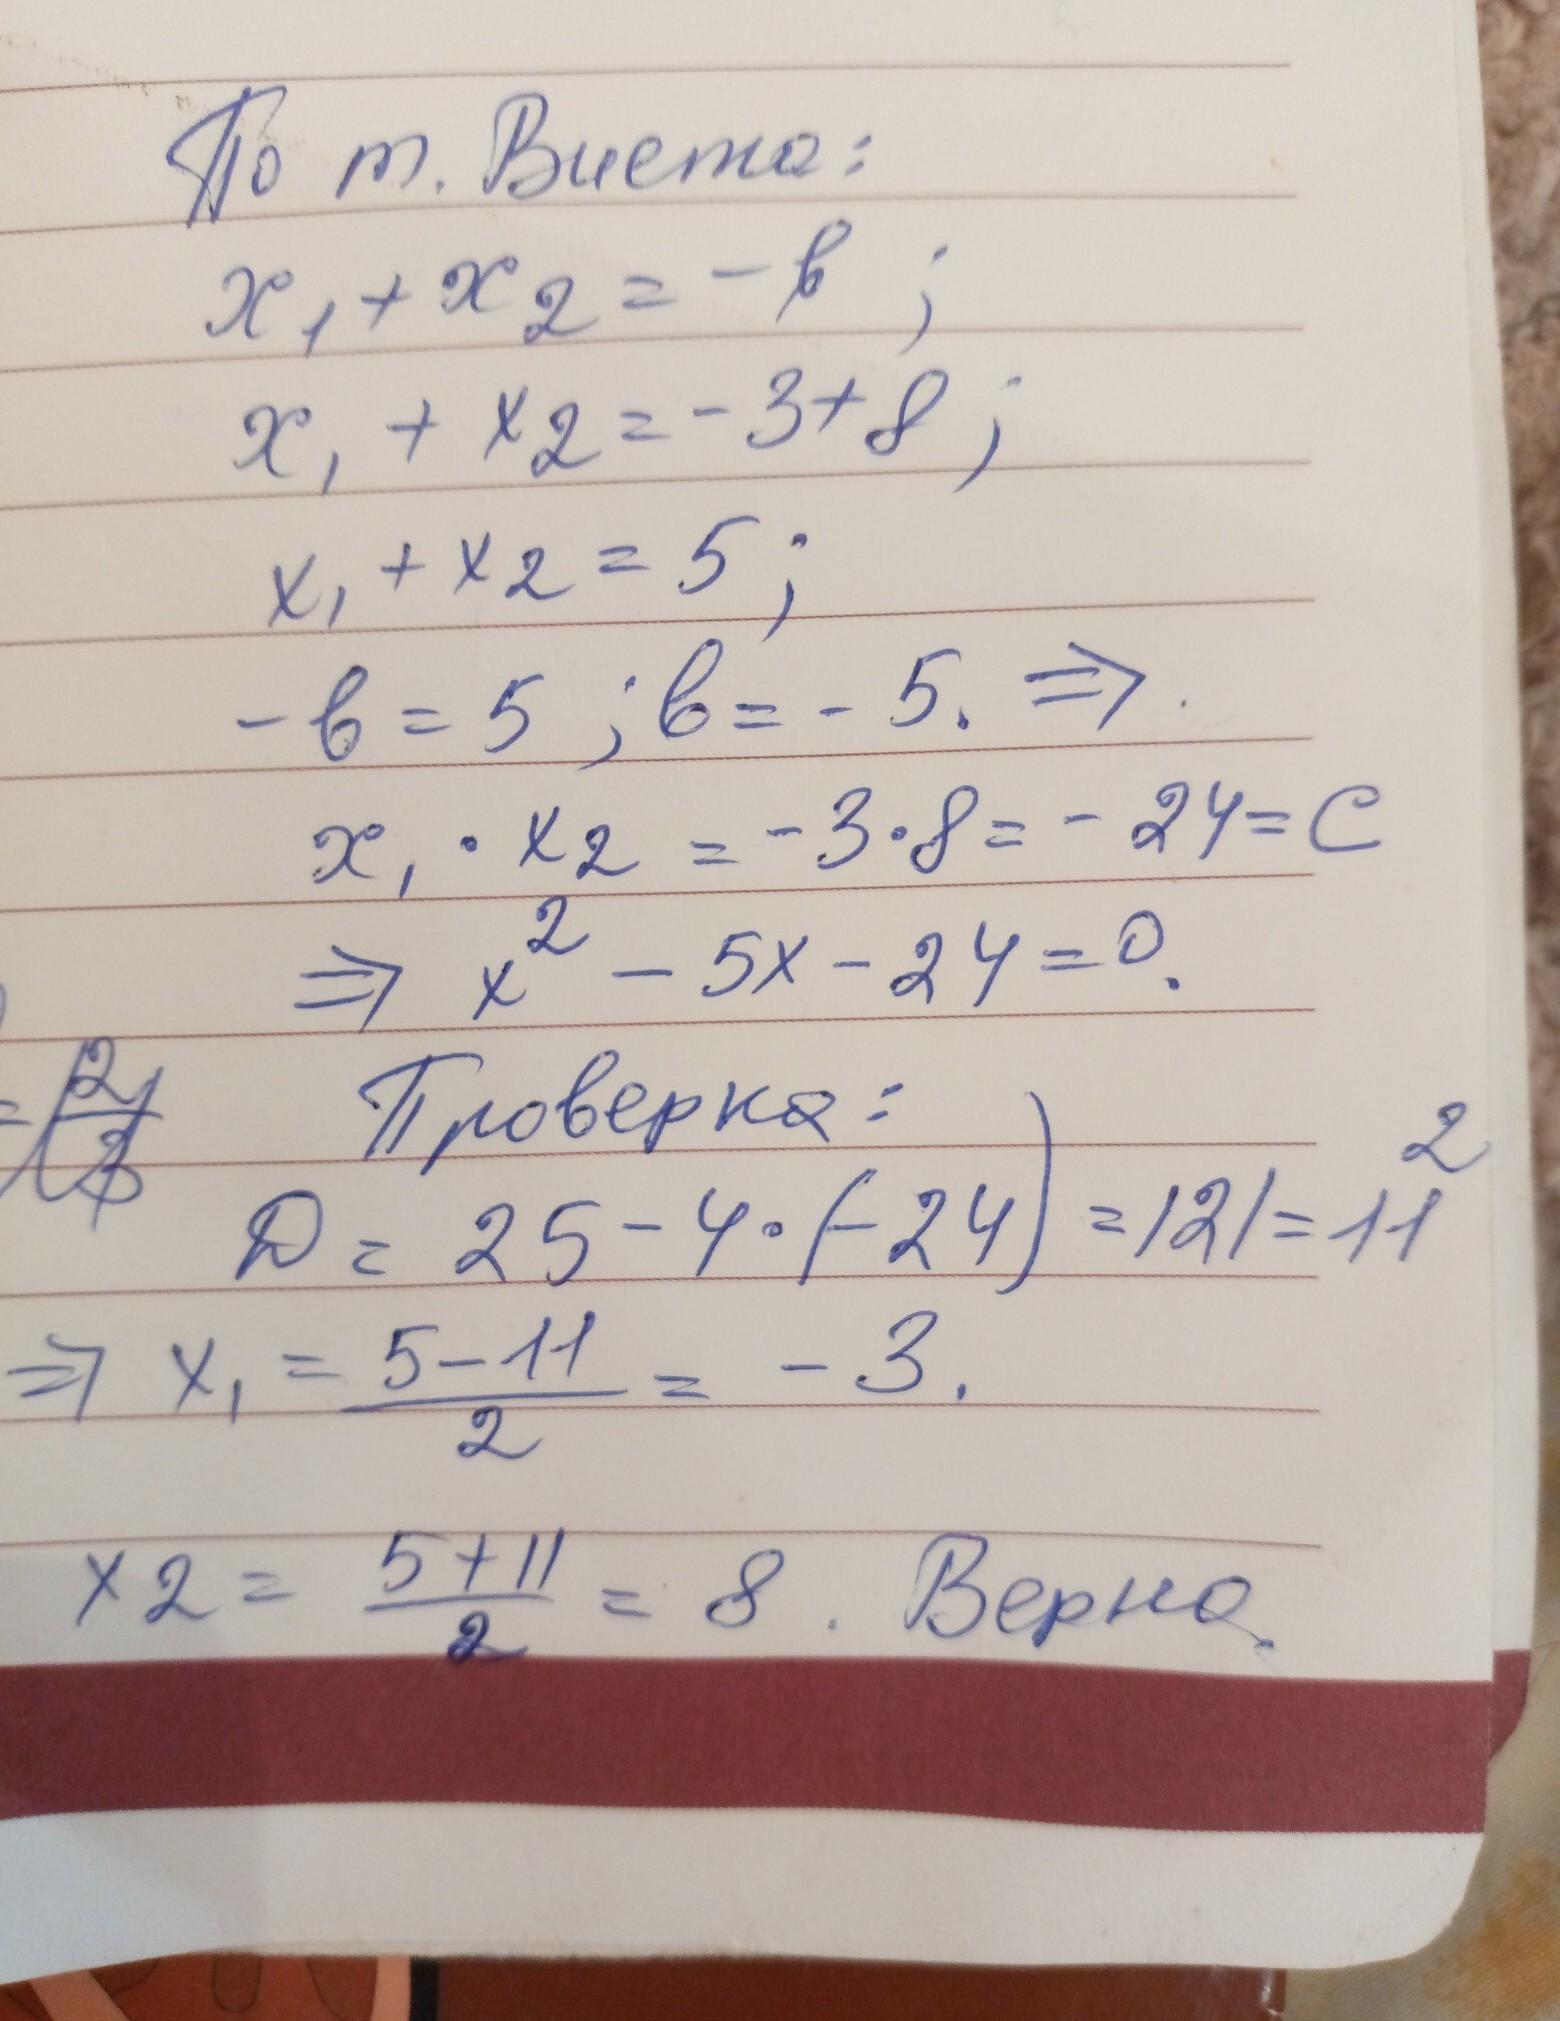 По т. Виета:
x₁ + x₂ = -в ;
x₁ + x₂ = -3+8 ;
x₁ + x₂ = 5 ;
-в = 5 ; в = -5. ⇒
x₁ · x₂ = -3·8 = -24 = С
⇒ x² - 5x - 24 = 0.
Проверка:
D = 25 - 4·(-24) = 121 = 11²
⇒ x₁ = (5-11)/2 = -3.
x₂ = (5+11)/2 = 8 . Верно.